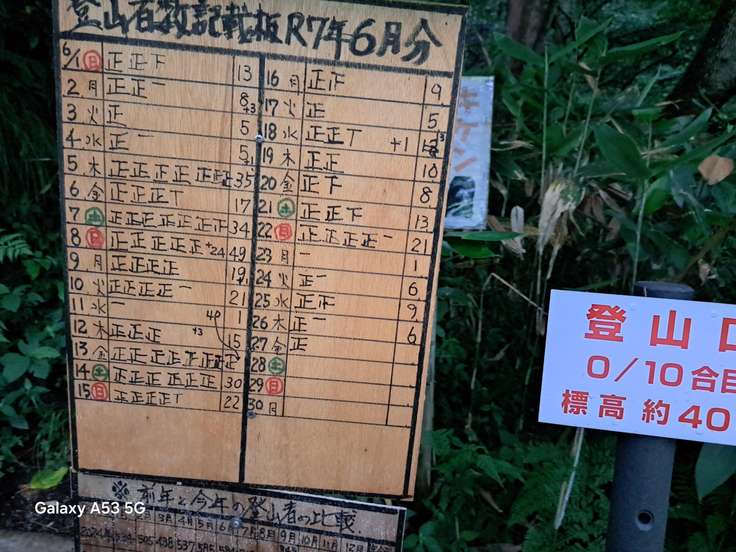 登山者数記載板 R7年6月分
6/1 日 正正下 13
2 月 正正一
3 火 正 5
4 水 正一
5 木 正正正正正正正 35
6 金 正正正丅 17
7 土 正正正正正正正 34
8 日 正正正正正 +24 49
9 月 正正正正 19
10 火 正正正正一 21
11 水 一 1
12 木 正正正 +3 15
13 金 正正正正正正正正 40
14 土 正正正正正正 30
15 日 正正正正丅 22
16 月 正正 9
17 火 正 5
18 水 正正丅 +1
19 木 正正 10
20 金 正下 8
21 土 正正下 13
22 日 正正正正一 21
23 月 一 1
24 火 正一 6
25 水 正正 9
26 木 正一 6
27 金 正
28 土
29 日
30 月
※ 前年と今年の登山者の比較
3月 4月 5月 6月 7月 8月 9月 10月 11月 12月
2024年 505 438 537 585
登山口
0/10合目
標高 約40
Galaxy A53 5G